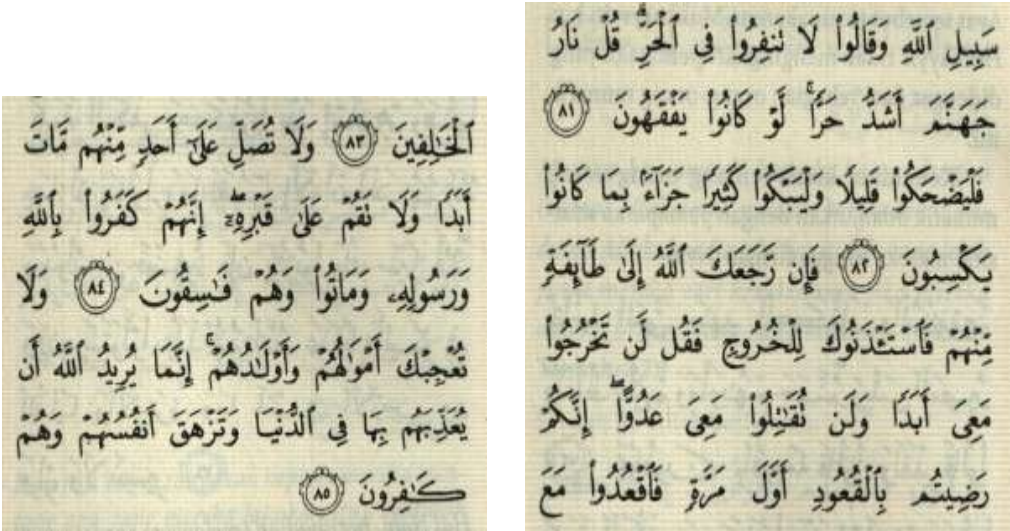 سَبِيلِ ٱللَّهِ وَقَالُوا۟ لَا تَنفِرُوا۟ فِى ٱلْحَرِّ ۗ قُلْ نَارُ
جَهَنَّمَ أَشَدُّ حَرًّا ۚ لَّوْ كَانُوا۟ يَفْقَهُونَ ﴿٨١﴾
فَلْيَضْحَكُوا۟ قَلِيلًا وَلْيَبْكُوا۟ كَثِيرًا جَزَآءًۢ بِمَا كَانُوا۟
يَكْسِبُونَ ﴿٨٢﴾ فَإِن رَّجَعَكَ ٱللَّهُ إِلَىٰ طَآئِفَةٍ
مِّنْهُمْ فَٱسْتَـْٔذَنُوكَ لِلْخُرُوجِ فَقُل لَّن تَخْرُجُوا۟
مَعِىَ أَبَدًا وَلَن تُقَـٰتِلُوا۟ مَعِىَ عَدُوًّا ۖ إِنَّكُمْ
رَضِيتُم بِٱلْقُعُودِ أَوَّلَ مَرَّةٍ فَٱقْعُدُوا۟ مَعَ
ٱلْخَـٰلِفِينَ ﴿٨٣﴾ وَلَا تُصَلِّ عَلَىٰٓ أَحَدٍ مِّنْهُم مَّاتَ
أَبَدًا وَلَا تَقُمْ عَلَىٰ قَبْرِهِۦٓ ۖ إِنَّهُمْ كَفَرُوا۟ بِٱللَّهِ
وَرَسُولِهِۦ وَمَاتُوا۟ وَهُمْ فَـٰسِقُونَ ﴿٨٤﴾ وَلَا
تُعْجِبْكَ أَمْوَٰلُهُمْ وَأَوْلَـٰدُهُمْ ۚ إِنَّمَا يُرِيدُ ٱللَّهُ أَن
يُعَذِّبَهُم بِهَا فِى ٱلدُّنْيَا وَتَزْهَقَ أَنفُسُهُمْ وَهُمْ
كَـٰفِرُونَ ﴿٨٥﴾